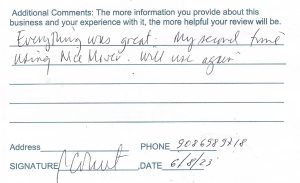 Additional Comments: The more information you provide about this
business and your experience with it, the more helpful your review will be.
Everything was great. My second time
using Nice Mover. Will use again
Address PHONE 9086989218
SIGNATURE DATE 6/8/23